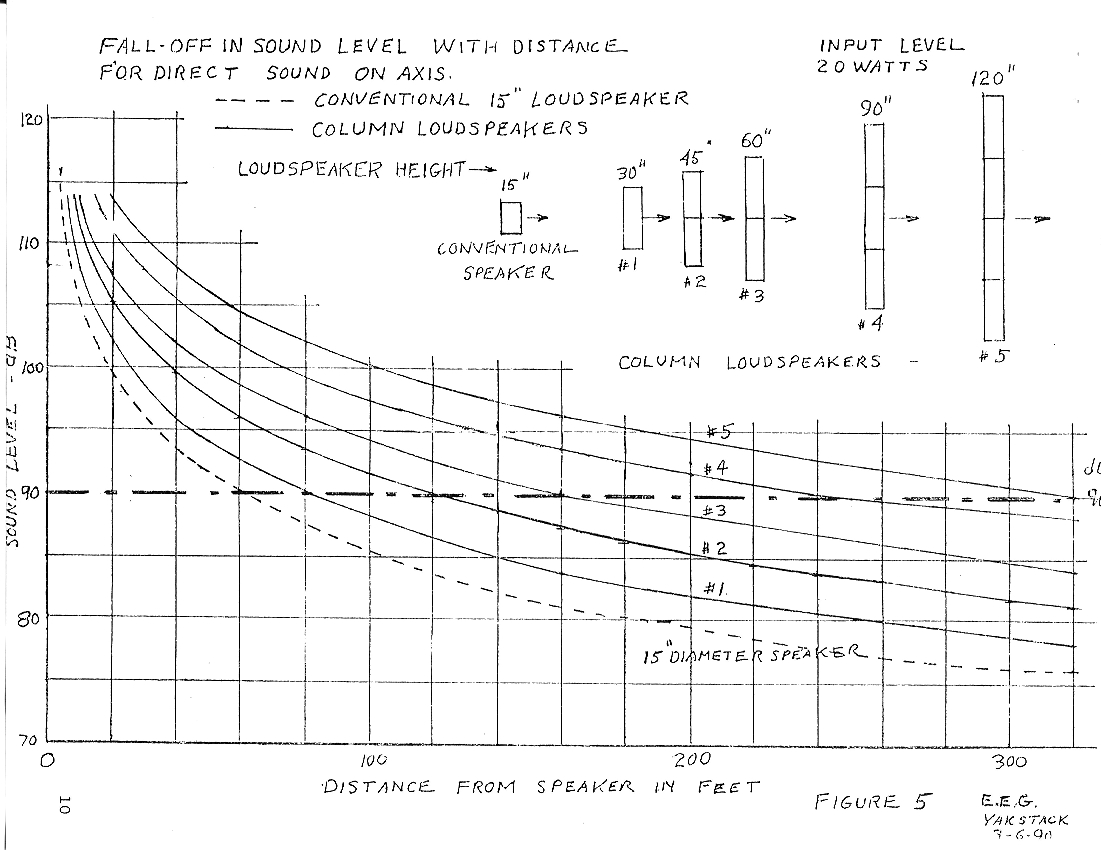 FALL-OFF IN SOUND LEVEL WITH DISTANCE
FOR DIRECT SOUND ON AXIS.
CONVENTIONAL 15" LOUDSPEAKER
COLUMN LOUDSPEAKERS
INPUT LEVEL
20 WATTS
LOUDSPEAKER HEIGHT
15"
30"
45"
60"
90"
120"
CONVENTIONAL
SPEAKER
#1
#2
#3
#4
#5
COLUMN LOUDSPEAKERS -
SOUND LEVEL - dB
120
110
100
90
80
70
#5
#4
#3
#2
#1
15" DIAMETER SPEAKER
0
100
200
300
DISTANCE FROM SPEAKER IN FEET
FIGURE 5
E.E.G.
YAKSTACK
10